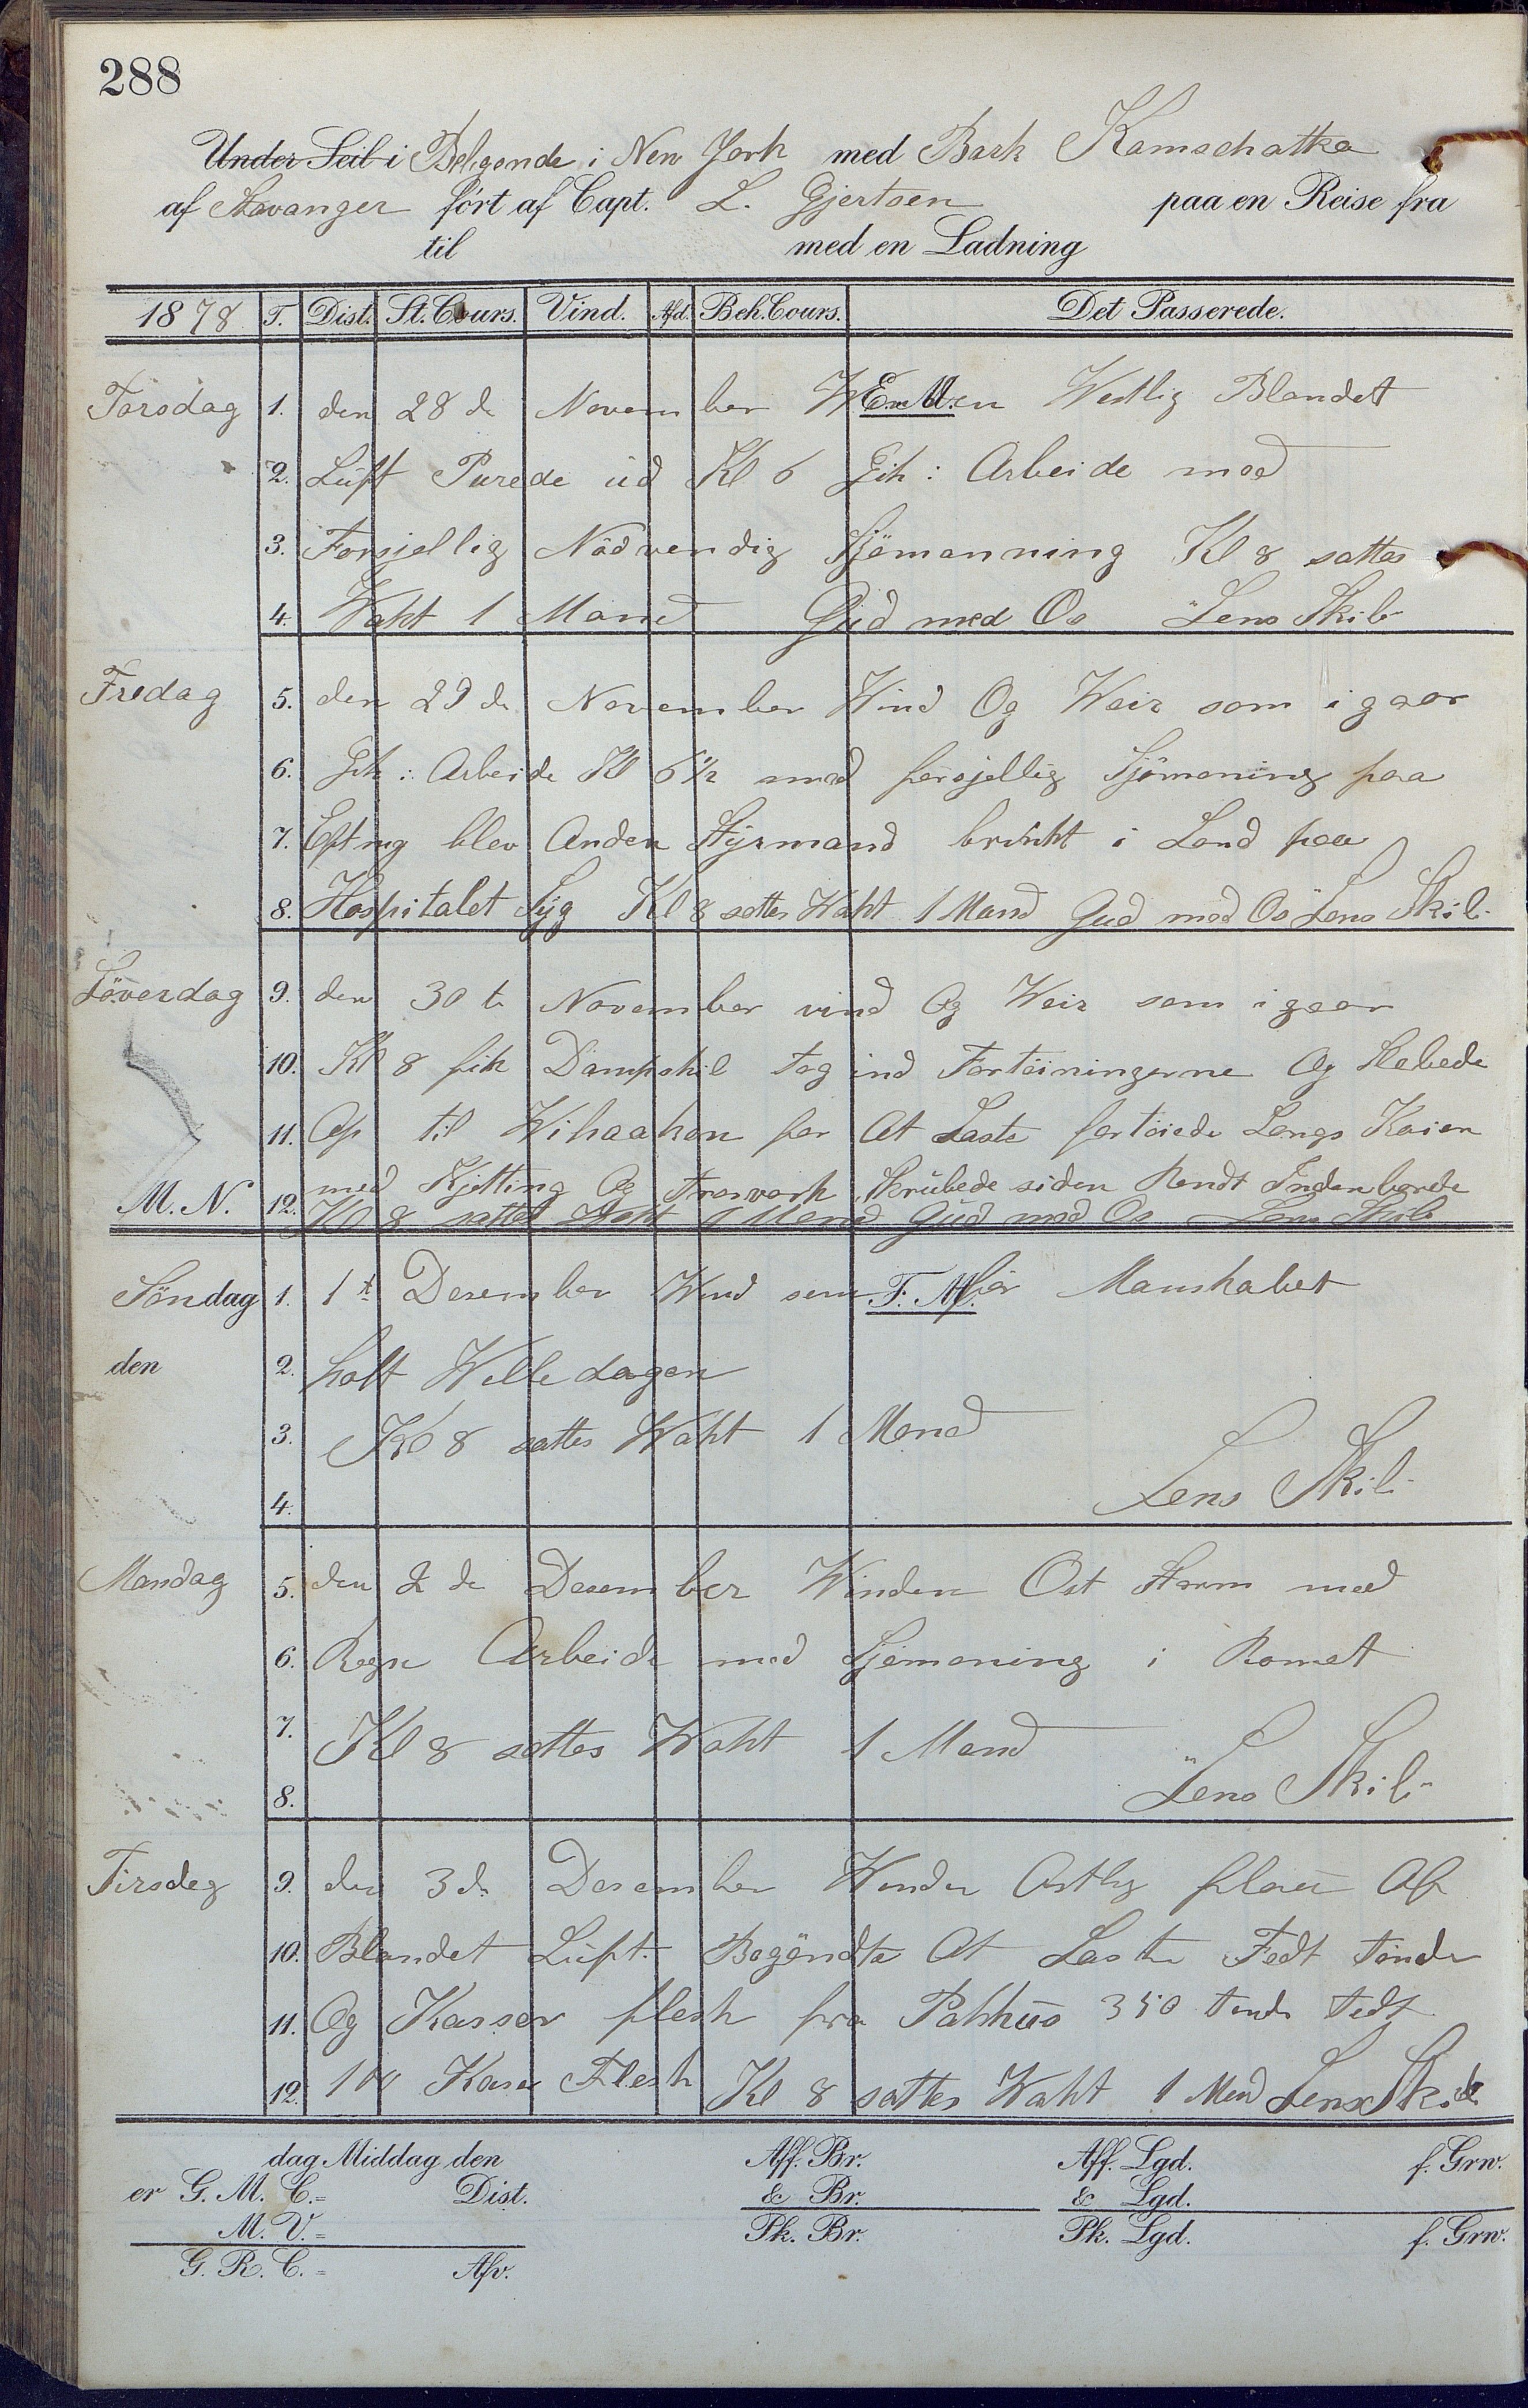 288
Under Seil i Beligende i New York med Bark Kamschatka
af Stavanger ført af Capt. L. Gjertsen paa en Reise fra
til med en Ladning
1878 T. Dist. St. Cours. Vind. Afd. Beh. Cours. Det Passerede.
E. M.
Torsdag 1. den 28 de November Westlig Blandet
2. Lüft Purede üd Kl 6 Gik : Arbeide med
3. Forsjellig Nödvendig Sjömanning Kl 8 sattes
4. Waht 1 Mand Güd med Os Lens Skib
Fredag 5. den 29 de November Wind Og Weir som i gaar
6. Gik : Arbeide Kl 6 1/2 med forsjellig Sjömaning paa
7. Eftmg blev Anden Styrmand brükht i Land paa
8. Hospitalet Syg Kl 8 sattes Waht 1 Mand Gud med Os Lens Skib
Löverdag 9. den 30 te November vind Og Weir som i gaar
10. Kl 8 fik Dampskib tog ind Fortöiningerne Og Slebede
11. Op til Wihaaken for At Laste fortöiede Langs Kaien
med Kjetting Og Trosvark Skrübede siden Rendt Indenborde
M. N. 12. Kl 8 sattes Waht 1 Mand Gud med Os Lens Skib
F. M.
Söndag 1. 1te Desember Wind som för Manskabet
den 2. holt Wille dagen
3. Kl 8 sattes Waht 1 Mand
4. Lens Skib
Mandag 5. den 2 de Desember Winden Ost Storm med
6. Regn Arbeide med Sjömaning i Romet
7. Kl 8 sattes Waht 1 Mand
8. Lens Skib
Tirsdag 9. den 3 de Desember Winden Ostlig flau Af
10. Blandet Lüft Begyndte At Laste Fedt Tönder
11. Og Kasser flesk fra Pakhüs 350 Tönde Fedt
12. 100 Kaser Flesk Kl 8 sattes Waht 1 Mand Lens Skib
dag Middag den Aff. Br. Aff. Lgd. f. Grw.
er G. M. C.= Dist. & Br. & Lgd.
M. V.= Pk. Br. Pk. Lgd. f. Grw.
G. R. C. = Afv.